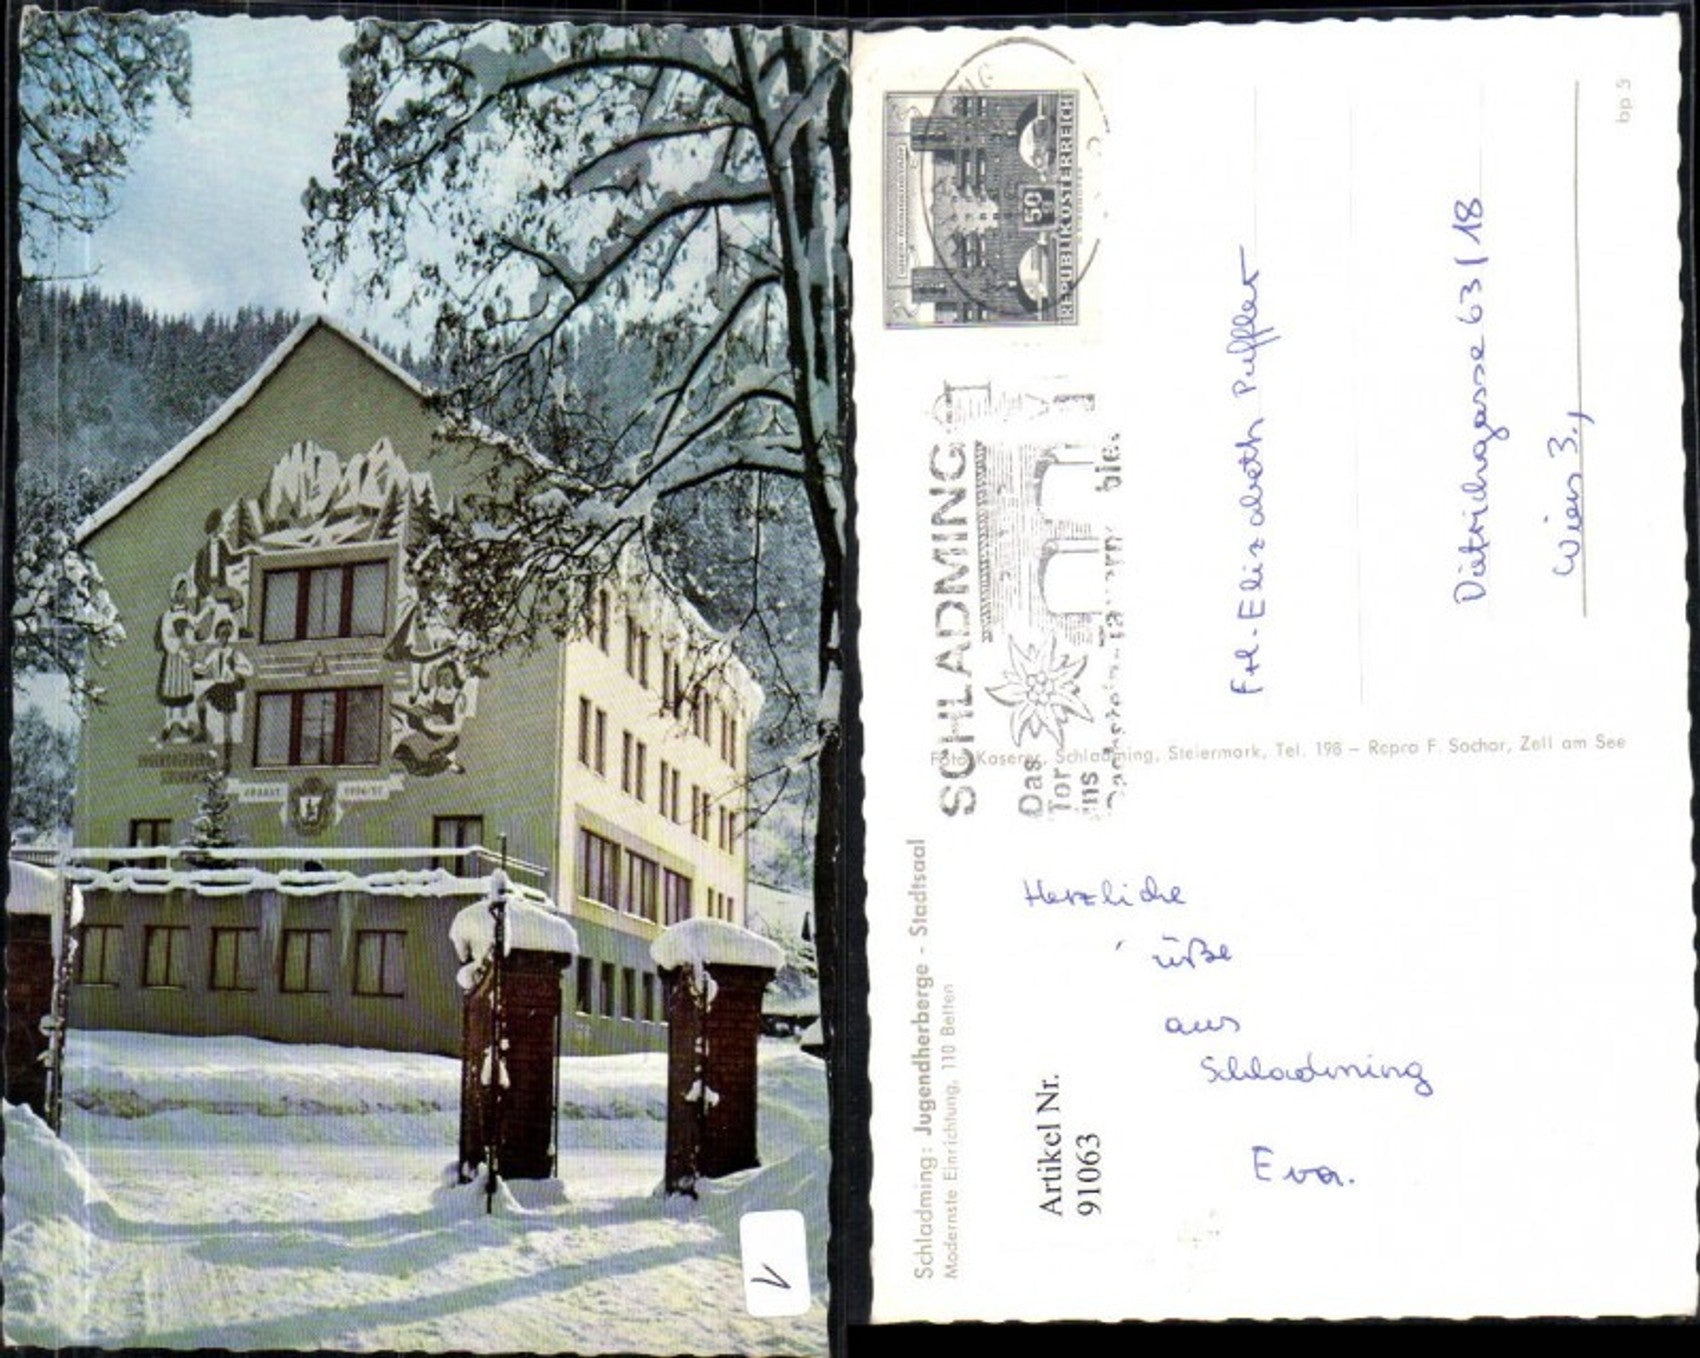 ERBAUT 1956/57
1
REPUBLIK ÖSTERREICH
50
SCHLADMING
Das
Tor
ins
Frl. Elisabeth Puffler
Dietrichgasse 63/18
Wien 3.,
Foto Kaserer, Schladming, Steiermark, Tel. 198 – Repro F. Sochor, Zell am See
bp 5
Schladming: Jugendherberge - Stadtsaal
Modernste Einrichtung, 110 Betten
Artikel Nr.
91063
Herzliche
üße
aus
Schladming
Eva.